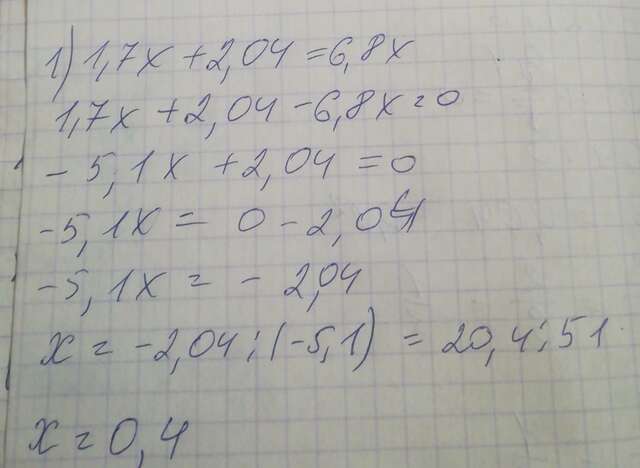 1) 1,7x + 2,04 = 6,8x
1,7x + 2,04 - 6,8x = 0
- 5,1x + 2,04 = 0
-5,1x = 0 - 2,04
-5,1x = - 2,04
x = -2,04 : (-5,1) = 20,4 : 51
x = 0,4